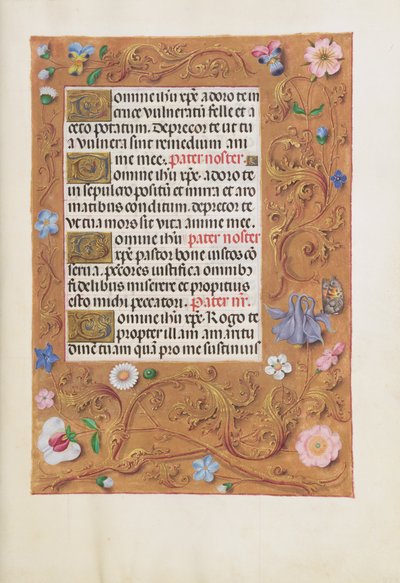 Domine ihu xpe adoro te in
cruce vulneratu felle et a
ceto potatum. deprecor te ut tu
a vulnera sint remedium ani
me mee. Pater noster.
Domine ihu xpe adoro te
in sepulcro positu et mirra et aro
matibus conditum. deprecor te
ut tua mors sit vita anime mee.
Domine ihu Pater noster
xpe pastor bone iustos co
serua. peccores iustifica omnib
fidelibus miserere et propitius
esto michi peccatori. Pater nr.
Domine ihu xpe Rogo te
propter illam amaritu
dinem tuam qua pro me sustinuis